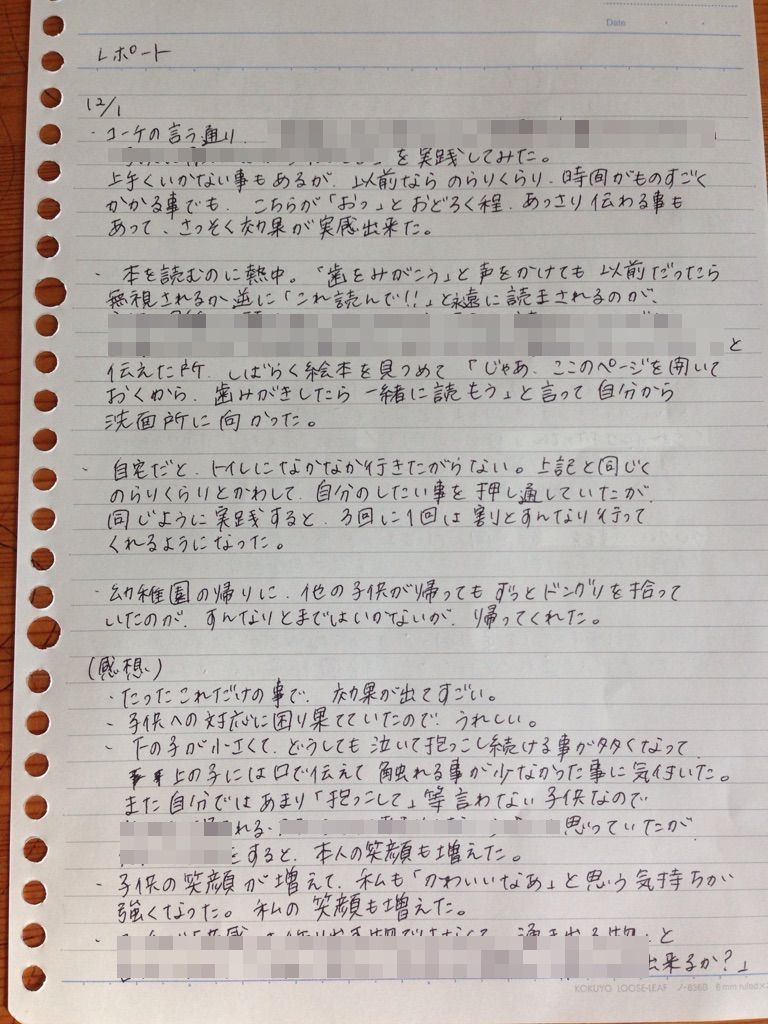 Date
レポート
12/1
・コーケの言う通り、
を実践してみた。
上手くいかない事もあるが、以前なら のらりくらり、時間がものすごく
かかる事でも、こちらが「おっ」とおどろく程、あっさり伝わる事も
あって、さっそく効果が実感出来た。
・本を読むのに熱中。「歯をみがこう」と声をかけても 以前だったら
無視されるか逆に「これ読んで!!」と永遠に読まされるのが、
と
伝えた所、しばらく絵本を見つめて「じゃあ、ここのページを開いて
おくから、歯みがきしたら 一緒に読もう」と言って 自分から
洗面所に向かった。
・自宅だと、トイレになかなか行きたがらない。上記と同じく
のらりくらりとかわして、自分のしたい事を 押し通していたが、
同じように実践すると、3回に1回は 割りとすんなり行って
くれるようになった。
・幼稚園の帰りに、他の子供が帰っても ずっとドングリを拾って
いたのが、すんなりとまではいかないが、帰ってくれた。
(感想)
・たったこれだけの事で、効果が出てすごい。
・子供への対応に困り果てていたので、うれしい。
・下の子が小さくて、どうしても 泣いて抱っこし続ける事が多くなって
上の子には口で伝えて 触れる事が少なかった事に気付いた。
また自分ではあまり「抱っこして」等言わない子供なので
れる・ 思っていたが、
をすると、本人の笑顔も増えた。
・子供の笑顔が増えて、私も「かわいいなあ」と思う気持ちが
強くなった。私の笑顔も増えた。
と
出来るか?」
KOKUYO LOOSE-LEAF ノ-836B 6mm ruled×